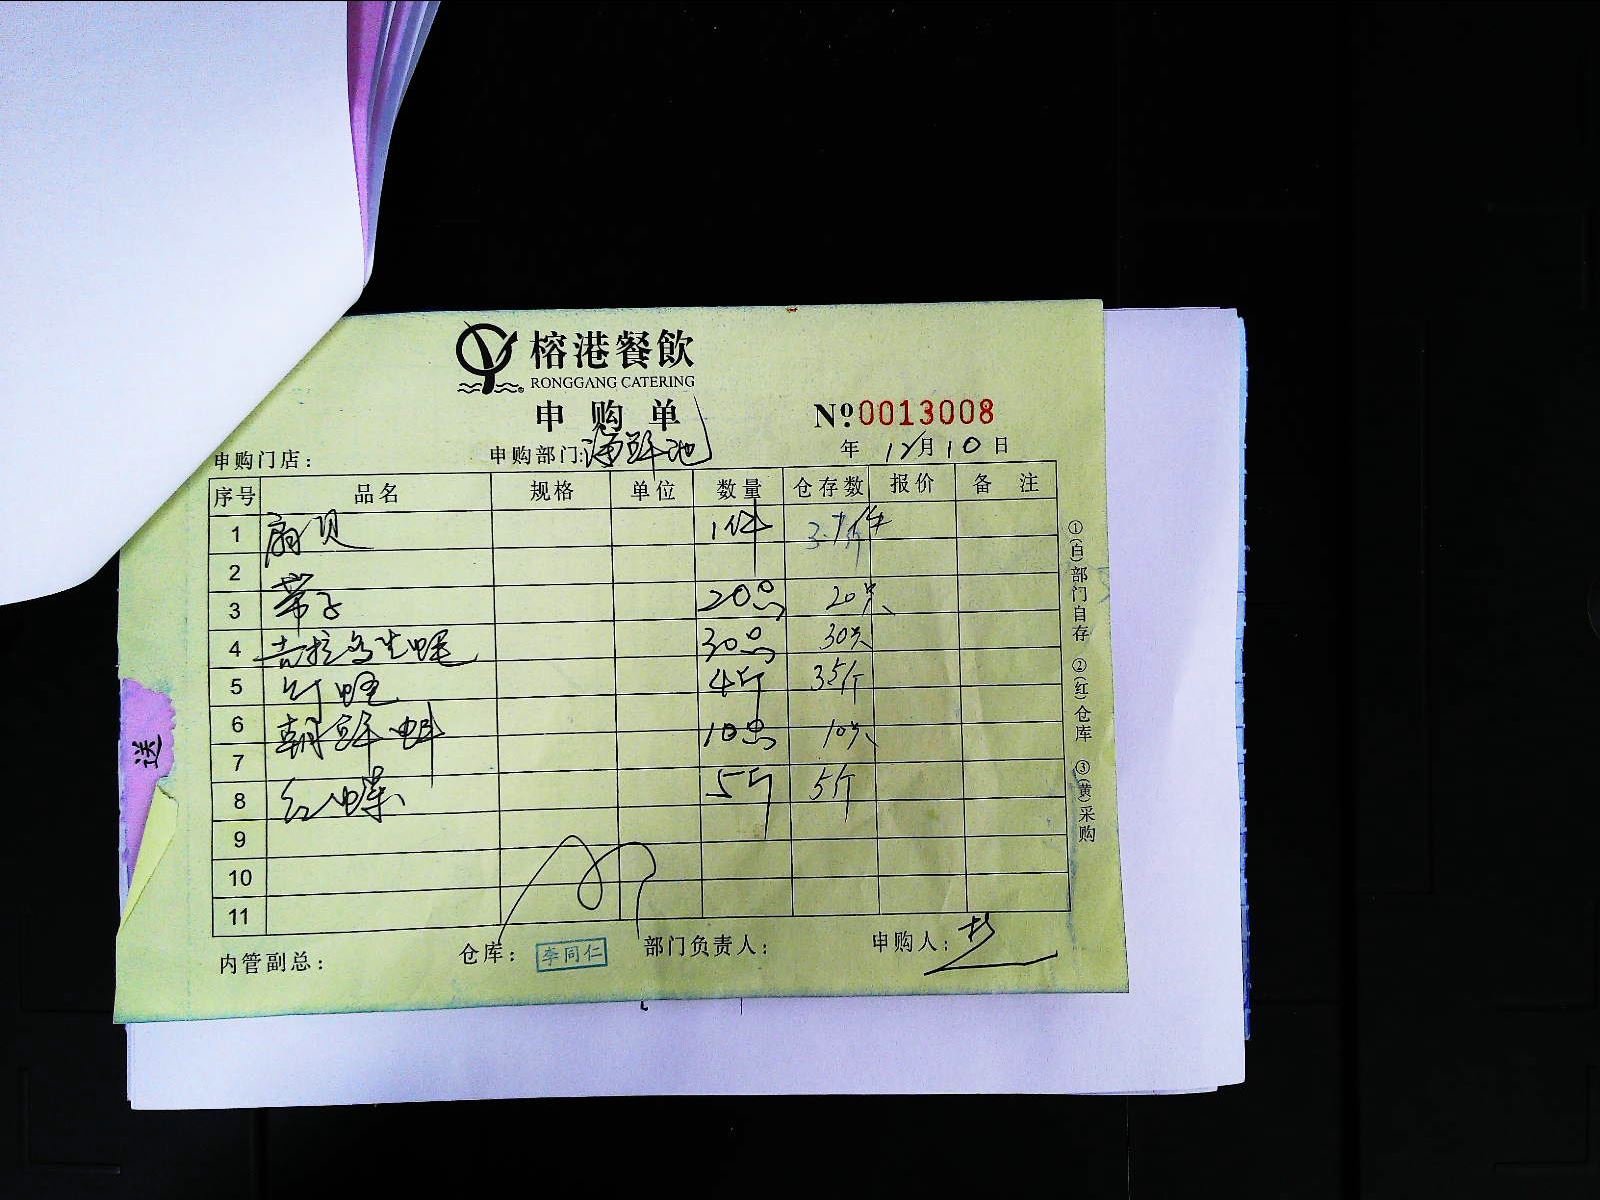 榕港餐飲
RONGGANG CATERING
申购单
№0013008
申购门店： 申购部门:海鲜池 年 12月10日
序号 品名 规格 单位 数量 仓存数 报价 备注
1 扇贝 1件
2
3 带子 20只 20只
4 吉拉多生蚝 30只 30只
5 竹蛏 4斤 3.5斤
6 朝鲜蚌 10只 10只
7
8 红蝶 5斤 5斤
9
10
11
内管副总： 仓库： 李同仁 部门负责人： 申购人：
①(白)部门自存 ②(红)仓库 ③(黄)采购
送